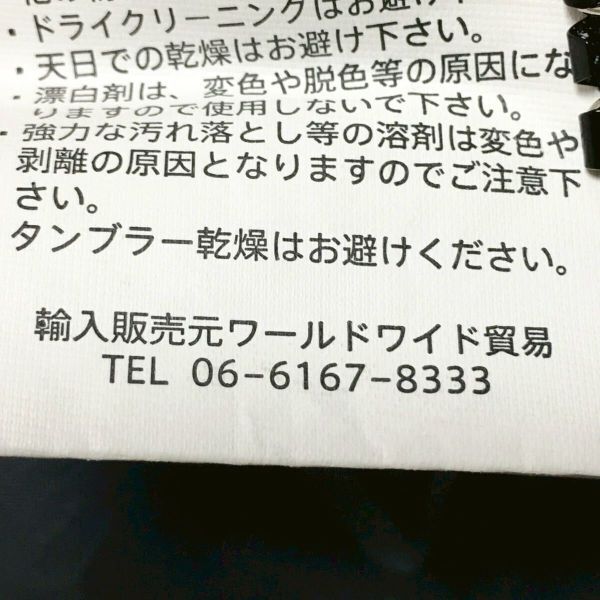 ・ドライクリーニングはお避け
・天日での乾燥はお避け下さい。
・漂白剤は、変色や脱色等の原因にな
りますので使用しないで下さい。
・強力な汚れ落とし等の溶剤は変色や
剥離の原因となりますのでご注意下
さい。
タンブラー乾燥はお避けください。
輸入販売元ワールドワイド貿易
TEL 06-6167-8333